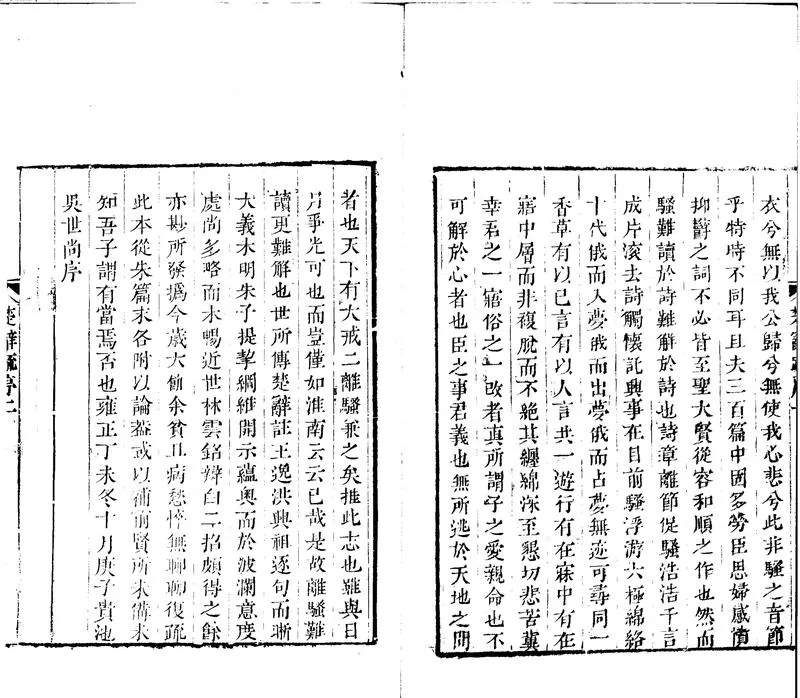 衣兮無以我公歸兮無使我心悲兮此非騷之音節
乎特時不同耳且夫三百篇中固多勞臣思婦感憤
抑鬱之詞不必皆至聖大賢從容和順之作也然而
騷難讀於詩難解於詩也詩章離節促騷浩浩千言
成片滾去詩觸懷託興事在目前騷浮游六極綿絡
十代俄而入夢俄而出夢俄而占夢無迹可尋同一
香草有以已言有以人言共一遊行有在寐中有在
寤中層而非複脫而不絕其纏綿深至懇切悲苦冀
幸君之一寤俗之一改者真所謂子之愛親命也不
可解於心者也臣之事君義也無所逃於天地之間
者也天下有大戒二離騷兼之矣推此志也雖與日
月爭光可也而豈僅如淮南云云已哉是故離騷難
讀更難解也世所傳楚辭註王逸洪興祖逐句而晰
大義未明朱子提挈綱維開示蘊奧而於波瀾意度
處尚多略而未暢近世林雲銘辨自二招頗得之餘
亦尠所發撝今歲大儉余貧且病愁悴無聊聊復疏
此本從朱篇末各附以論蓋或以補前賢所未備未
知吾子謂有當焉否也雍正丁未冬十月庚子貴池
吳世尚序
楚辭疏序二